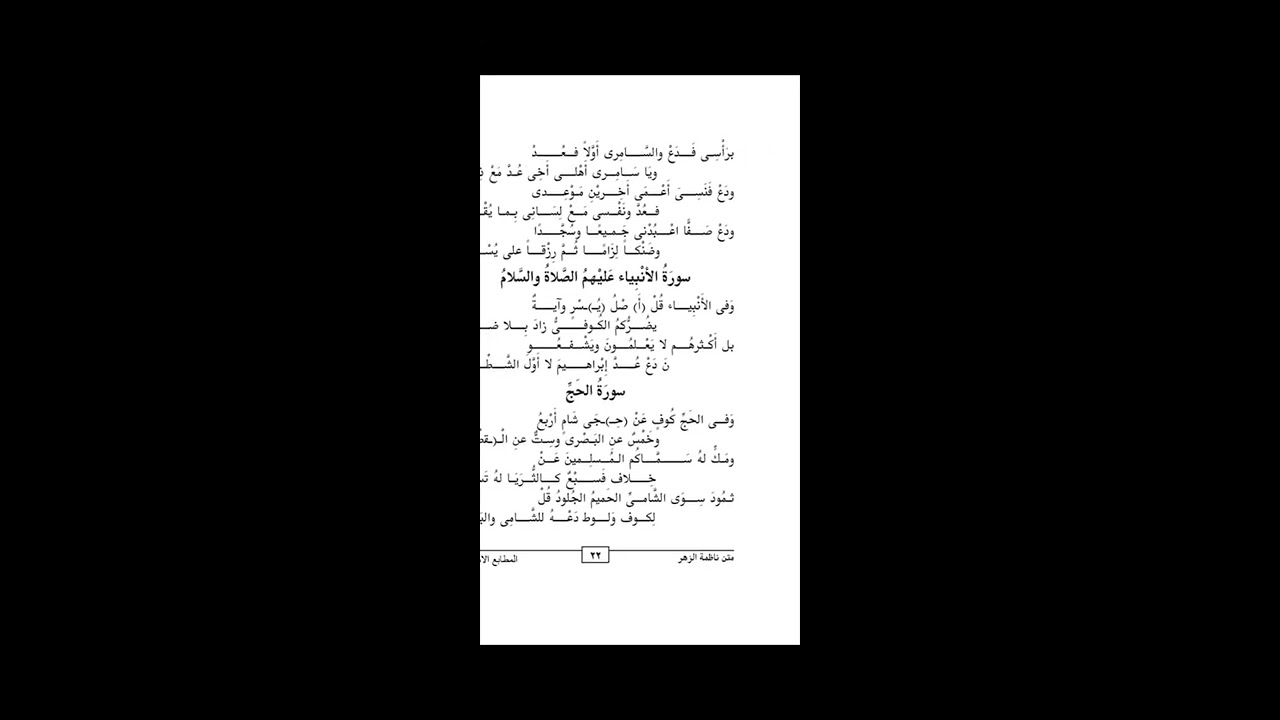 برَأْسِى فَدَعْ والسَّامِرِى أَوَّلاً فعُدْ
ويَا سَامِرى أهْلى أخِى عُدَّ مَعْ
ودَعْ فَنَسِىَ أَعْمَى أخِريْنِ مَوْعِدى
فعُدَّ ونَفْسى مَعْ لِسَانِى بِما
ودَعْ صَفًّا اعْبُدْنى جَمِيعًا وسُجَّدًا
وضَنْكاً لِزَامًا ثُمَّ رِزْقاً على
سورَةُ الأنْبِياء عَليْهمُ الصَّلاةُ والسَّلامُ
وَفى الأَنْبِياء قُلْ (أَ) صْلُ (يُـ)ـسْرٍ وآيةٌ
يضُرُّكمُ الكُوفىُّ زادَ بِلا
بل أَكْثرهُم لا يَعْلمُونَ ويَشْفعُو
نَ دَعْ عُدَّ إبْراهيمَ لا أوَّلَ
سورَةُ الحَجِّ
وَفى الحَجِّ كُوفٍ عَنْ (حِـ)ـجَى شَامٍ أَرْبعُ
وخَمْسٌ عنِ البَصْرى وسِتٌّ عنِ
ومَكٍّ لهُ سَمَّاكُم المُسلِمينَ عَنْ
خِلاف فَسبْعٌ كالثُّرَيَا لهُ
ثمُودَ سِوَى الشَّامىِّ الحَميمُ الجُلودُ قُلْ
لِكوف وَلوط دَعْهُ للشَّامِى
متن ناظمة الزهر
٢٢
المطابع